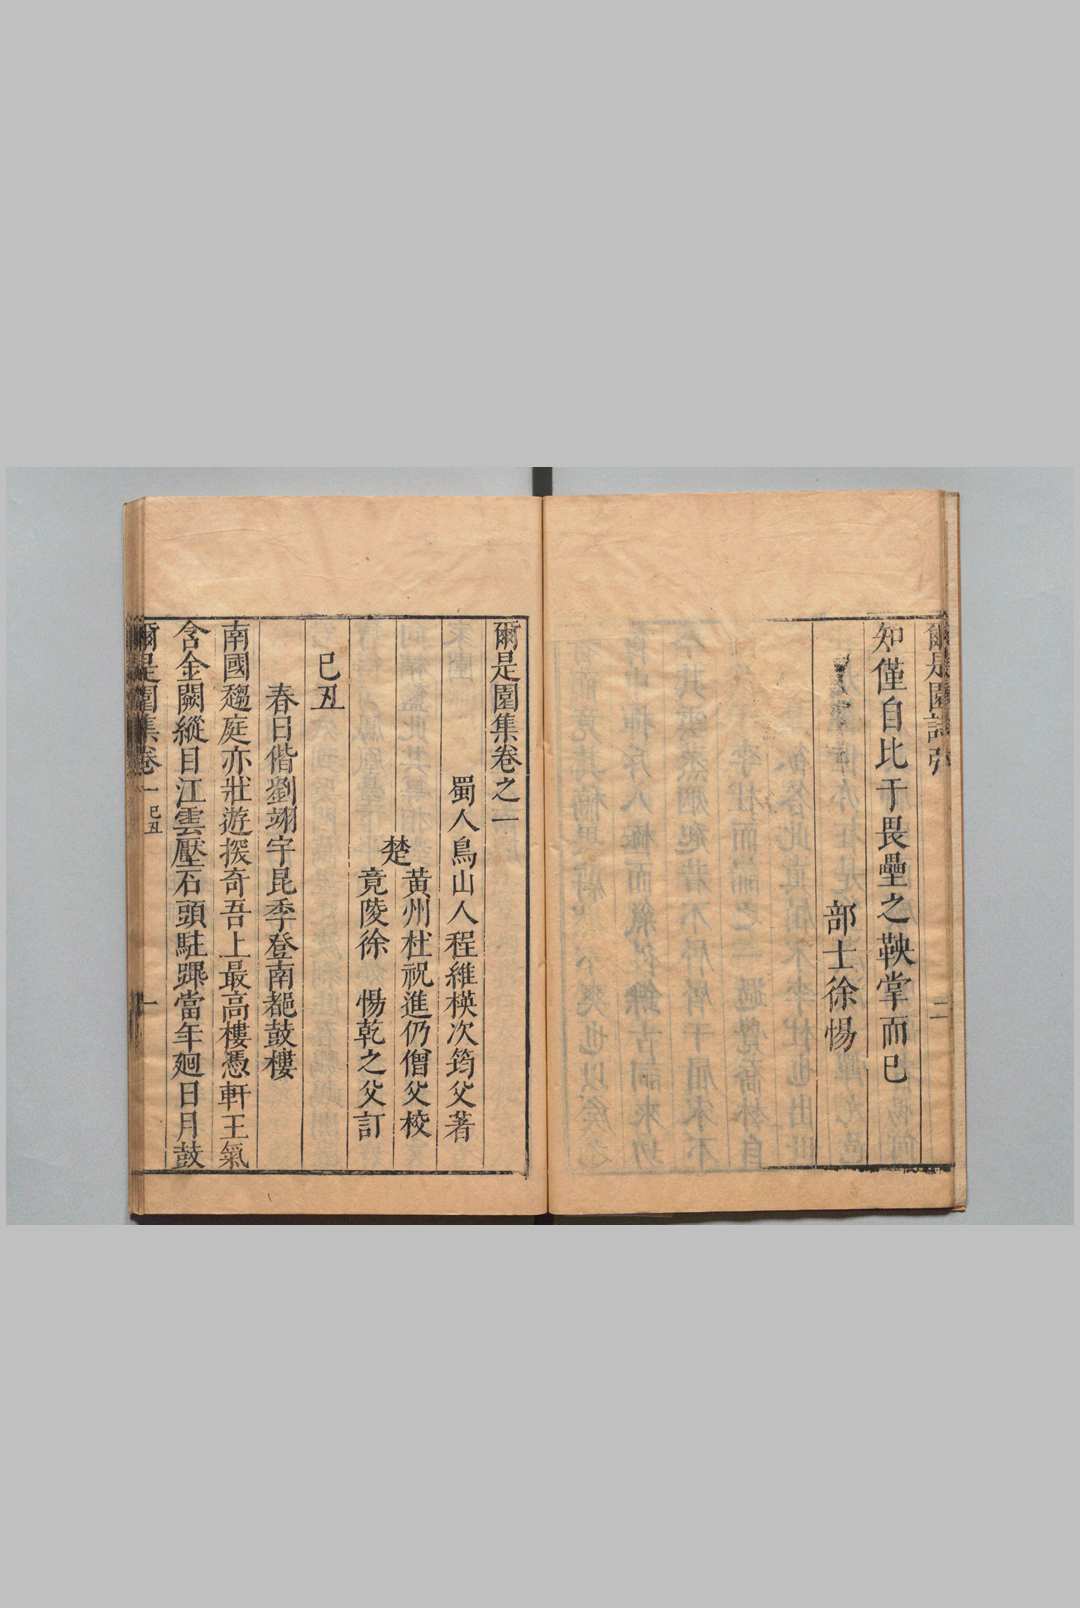 知僅自比于畏壘之鞅掌而已
部士徐惕
爾是園集卷之一
蜀人鳥山人程維楧次筠父著
楚
黃州杜祝進仍僧父校
竟陵徐　惕乾之父訂
已丑
春日偕劉翊宇昆季登南都鼓樓
南國趨庭亦壯遊探奇吾上最高樓憑軒王氣
含金闕縱目江雲壓石頭駐蹕當年廻日月鼓
爾是園集卷一 已丑
一